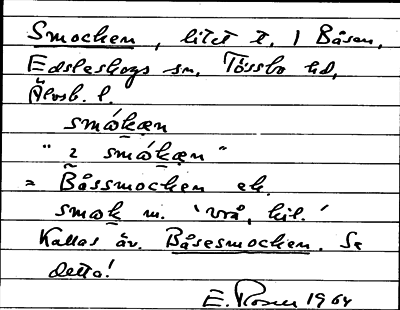 Smocken, litet t. i Båsen,
Edsleskogs sn, Tössbo hd,
Älvsb. l.
smókæn
" i smókæn "
= Båssmocken ek.
smok m. 'vrå, kil.'
Kallas äv. Båsesmocken. Se
detta!
E. Rosen 1964